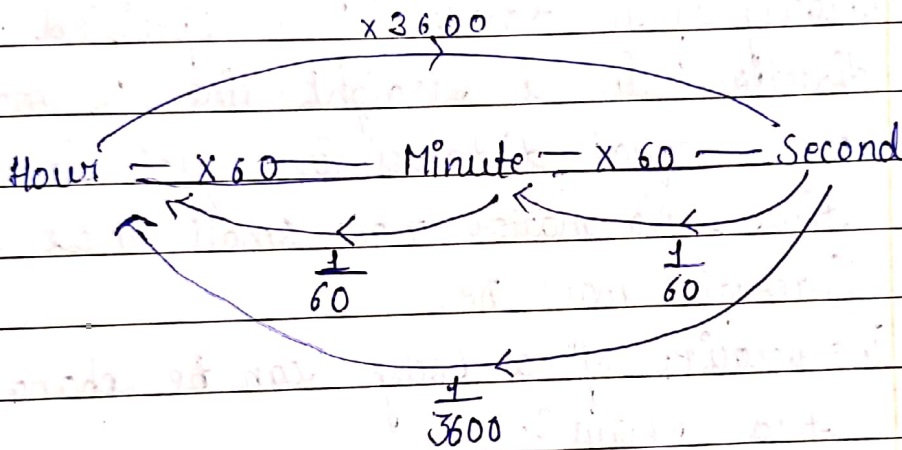 x 3600
Hour = X 60 = Minute = X 60 — Second
1/60 1/60
1/3600